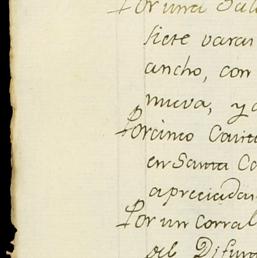 Por una Sala
siete varas
ancho, con
nueva, y a
Por cinco Cavas
en Santa Ca
apreciadas
Por un Corral
del Difun